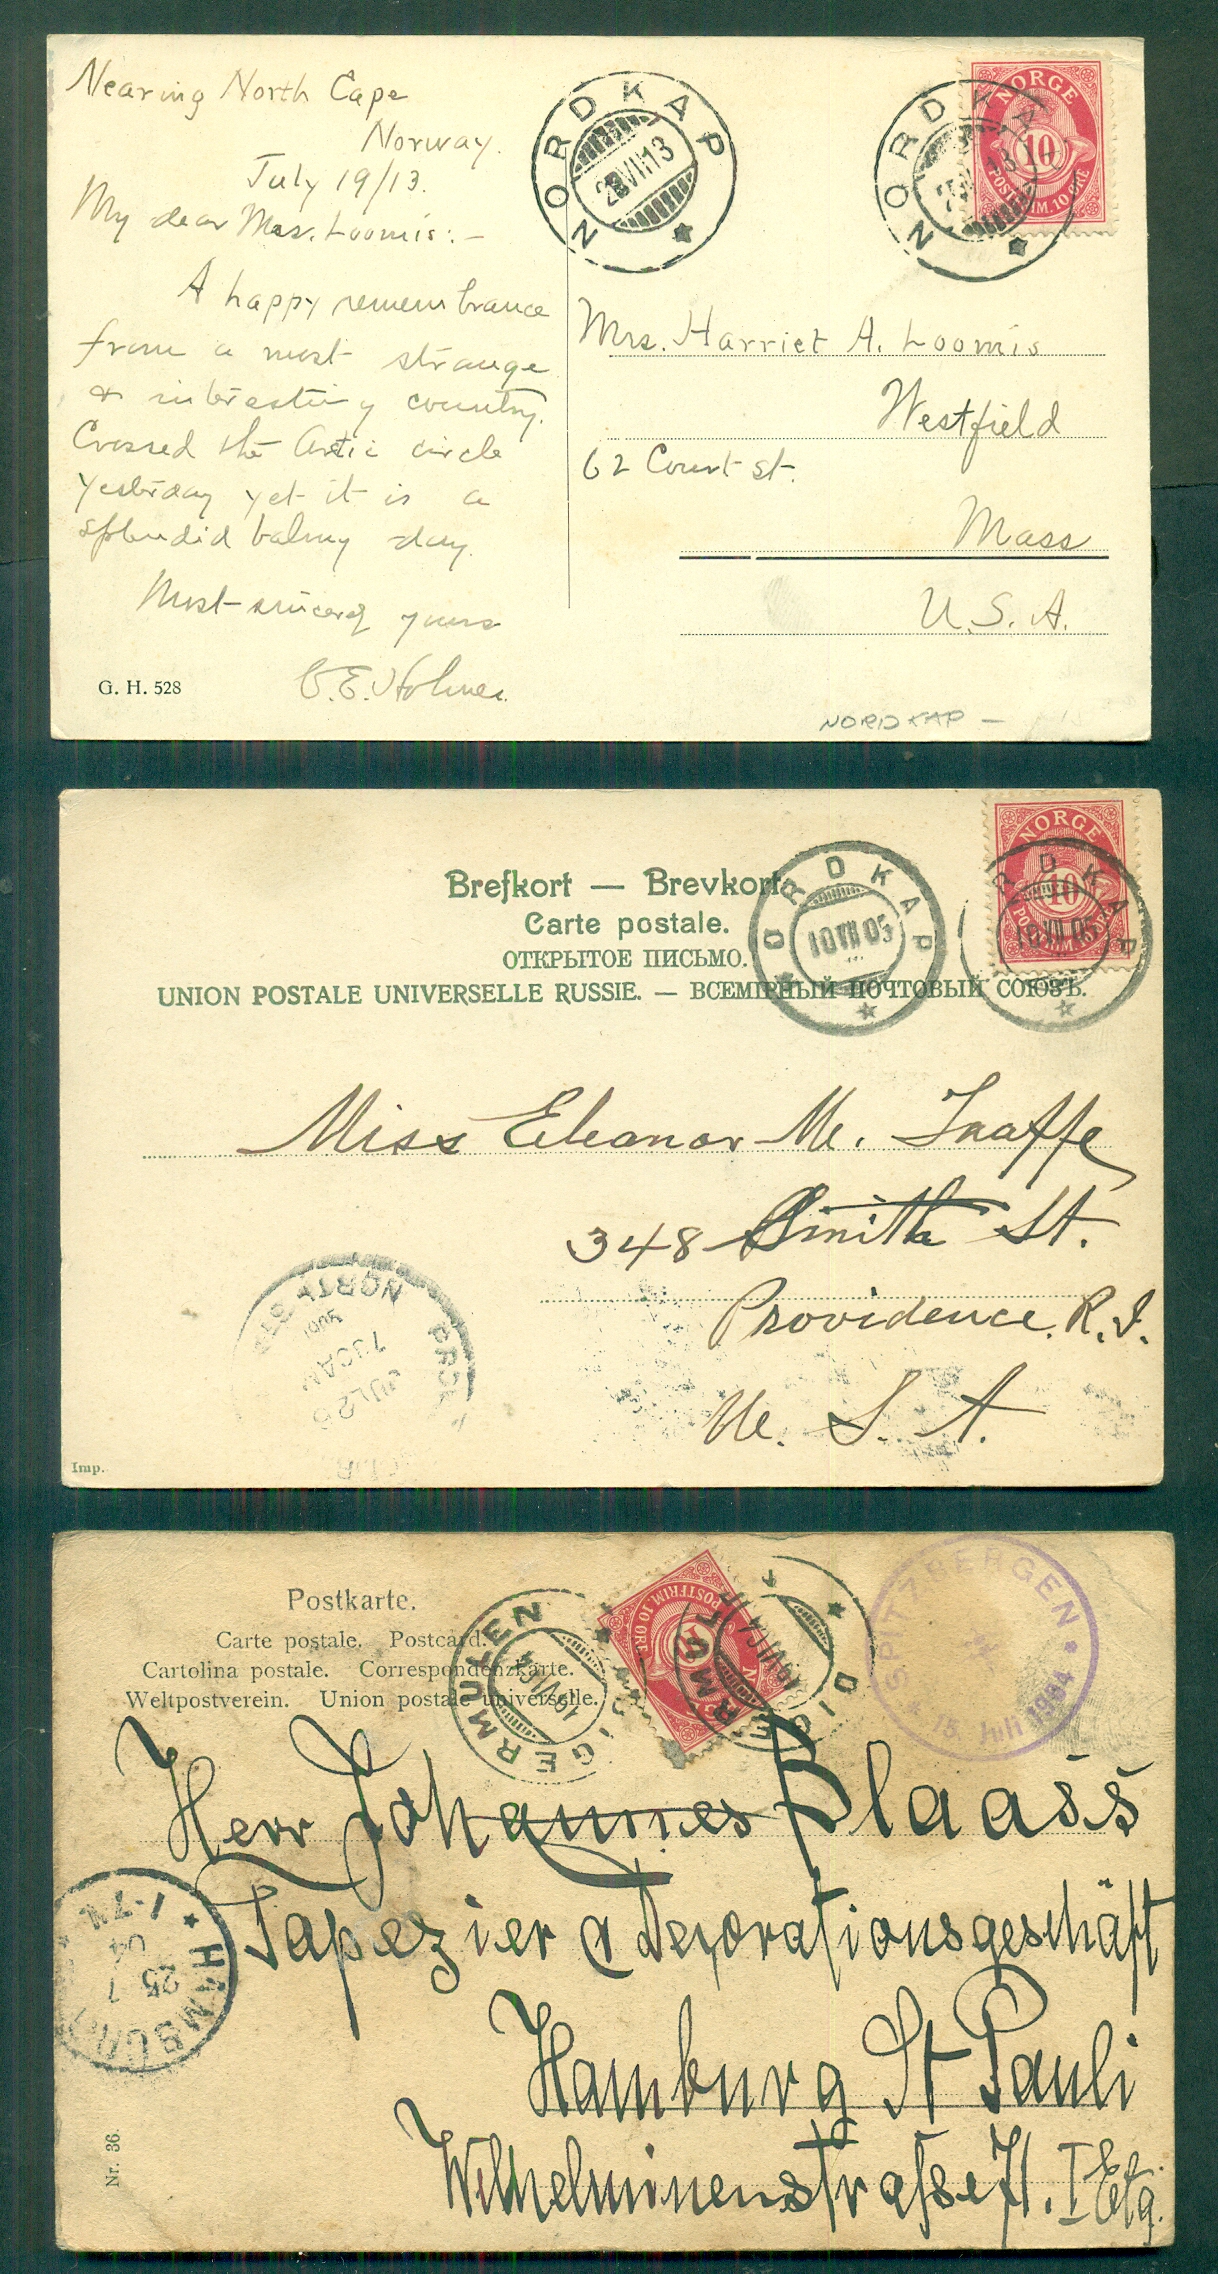 Nearing North Cape
Norway.
July 19/13.
My dear Mrs. Loomis:-
A happy remembrance
from a most strange
& interesting country.
Crossed the Artic circle
yesterday yet it is a
splendid balmy day.
Most sincerely yours
C.E. Holmes.
G. H. 528
NORDKAP
VII 13
NORDKAP
NORGE
10
POSTFRIM. 10 ØRE
Mrs. Harriet A. Loomis
Westfield
62 Court st.
Mass
U.S.A.
NORDKAP -
Brefkort — Brevkort
Carte postale.
ОТКРЫТОЕ ПИСЬМО.
UNION POSTALE UNIVERSELLE RUSSIE. — ВСЕМІРНЫЙ ПОЧТОВЫЙ СОЮЗЪ.
ORDKAP
10 VII 05
NORGE
10
RDKAP
10 VII 05
Miss Eleanor M. Taaffe
348 Smith St.
Providence. R.I.
U. S. A.
NORTH STA
PROV
JUL 20
730AM
Imp.
Postkarte.
Carte postale. Postcard.
Cartolina postale. Correspondenzkarte.
Weltpostverein. Union postale universelle.
DIGERMULEN
19 VII 04
POSTFRIM. 10 ØRE
10
DIGERMUL
19 VII 04
SPITZBERGEN
* 15. Juli 1904 *
Herr Johannes Blaass
Tapezier & Dekorationsgeschäft
Hamburg St Pauli
Wilhelminenstrasse 71. I Etg.
HAMBURG
25 7
04
1-7N.
Nr. 36.